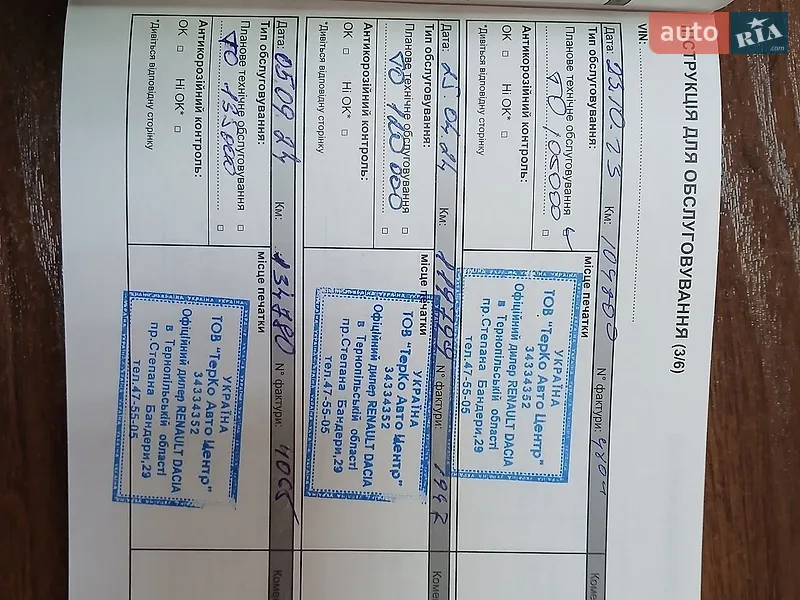 auto RIA .com
СТРУКЦІЯ ДЛЯ ОБСЛУГОВУВАННЯ (3/6)
VIN:
Дата: 23.10.23 Км: № фактури: Коме
Тип обслуговування: місце печатки
Планове технічне обслуговування
ТО 105000
Антикорозійний контроль:
ОК Ні ОК*
*Дивіться відповідну сторінку
УКРАЇНА
ТОВ "ТерКо Авто Центр"
34334352
Офіційний дилер RENAULT DACIA
в Тернопільській області
пр.Степана Бандери,29
тел.47-55-05
Дата: 25.04.24 Км: 119799 1947 Коме
Тип обслуговування: місце печатки
Планове технічне обслуговування
ТО 120 000
Антикорозійний контроль:
ОК Ні ОК*
*Дивіться відповідну сторінку
УКРАЇНА
ТОВ "ТерКо Авто Центр"
34334352
Офіційний дилер RENAULT DACIA
в Тернопільській області
пр.Степана Бандери,29
тел.47-55-05
Дата: 05.09.24 Км: 134780 № фактури: 4065 Комен
Тип обслуговування: місце печатки
Планове технічне обслуговування
ТО 135000
Антикорозійний контроль:
ОК Ні ОК*
*Дивіться відповідну сторінку
УКРАЇНА
ТОВ "ТерКо Авто Центр"
34334352
Офіційний дилер RENAULT DACIA
в Тернопільській області
пр.Степана Бандери,29
тел.47-55-05